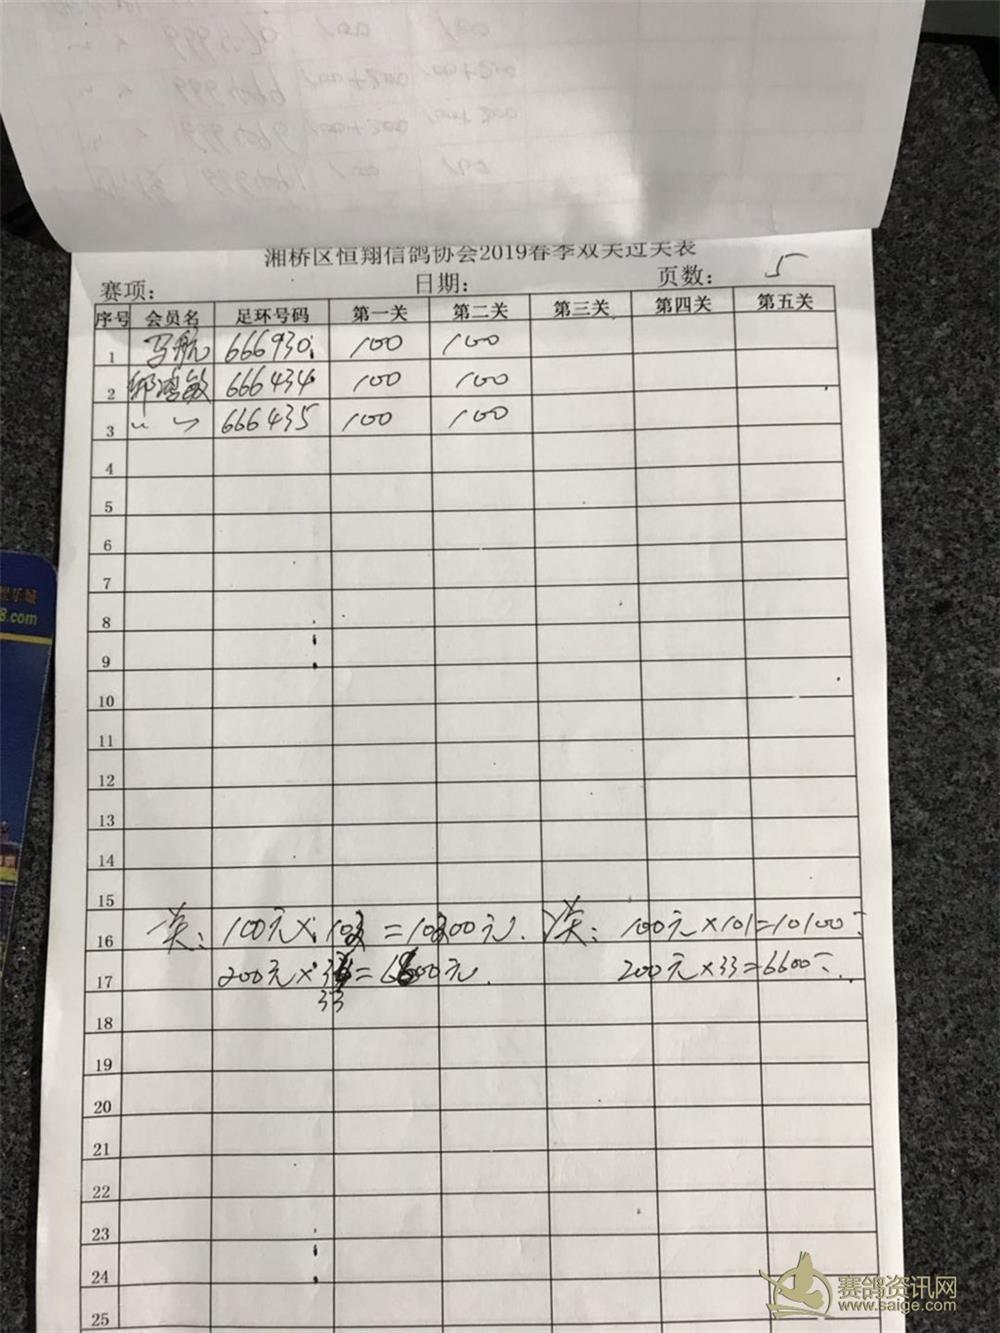 湘桥区恒翔信鸽协会2019春季双关过关表
赛项： 日期： 页数： 5
序号 会员名 足环号码 第一关 第二关 第三关 第四关 第五关
1 马航 666930 100 100
2 郑鸿敏 666434 100 100
3 〃 〃 666435 100 100
4
5
6
7
8
9
10
11
12
13
14
15
16 一关： 100元× = 元. 二关： 100元×101=10100元
17 200元× = 元. 200元×33=6600元.
33
18
19
20
21
22
23
24
25
乐城
8.com
赛鸽资讯网
www.saige.com